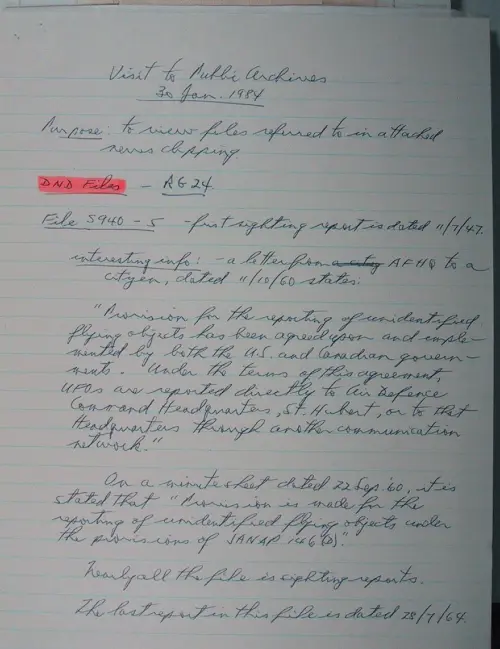 Visit to Public Archives
30 Jan. 1984
Purpose: to view files referred to in attached
news clipping
DND Files - RG 24.
File 5940-5 - first sighting report is dated 11/7/47.
interesting info: - a letter from a city AFHQ to a
cityen, dated 11/10/60 states:
"Provision for the reporting of unidentified
flying objects has been agreed upon and imple-
mented by both the U.S. and Canadian govern-
ments. Under the terms of this agreement,
UFOs are reported directly to Air Defence
Command Headquarters, St. Hubert, or to that
Headquarters through another communication
network."
On a minute sheet dated 22 Sep. '60, it is
stated that "Provision is made for the
reporting of unidentified flying objects under
the provisions of JANAP 146(D)."
Nearly all the file is sighting reports.
The last report in this file is dated 28/7/64.